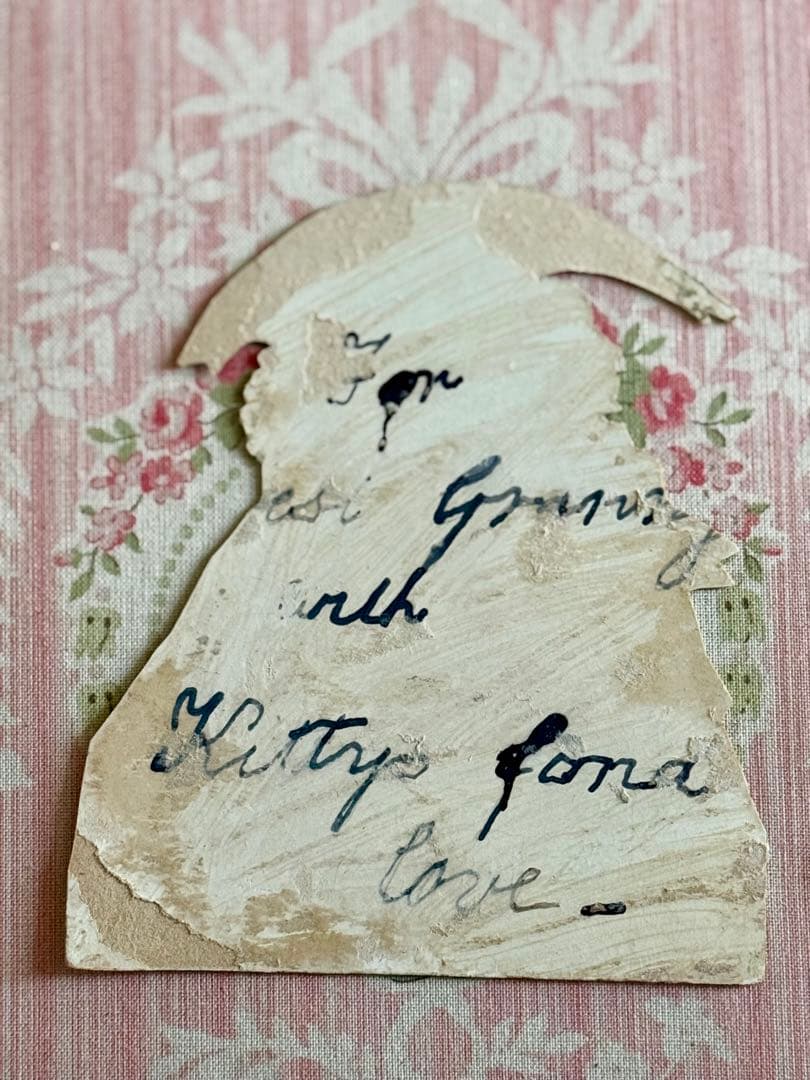 For
est Granny
with
Kittys fond
love –